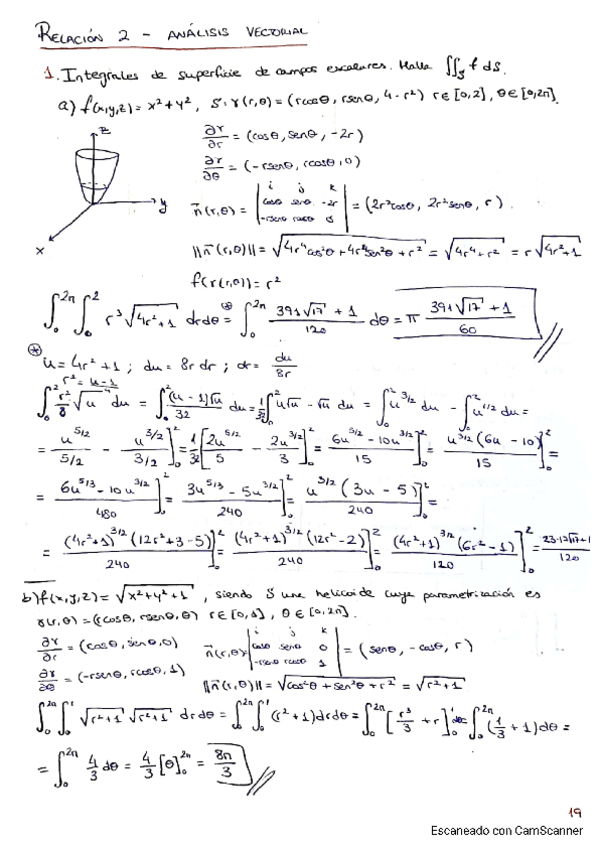 RELACIÓN 2 - ANÁLISIS VECTORIAL
1. Integrales de superficie de campos escalares. Halla ∬_S f dS.
a) f(x,y,z) = x²+y², S: γ(r,θ) = (rcosθ, rsenθ, 4-r²) r∈[0,2], θ∈[0,2π].
z
y
x
∂γ/∂r = (cosθ, senθ, -2r)
∂γ/∂θ = (-rsenθ, rcosθ, 0)
n⃗(r,θ) = |i j k; cosθ senθ -2r; -rsenθ rcosθ 0| = (2r²cosθ, 2r²senθ, r).
||n⃗(r,θ)|| = √(4r⁴cos²θ + 4r⁴sen²θ + r²) = √(4r⁴+r²) = r√(4r²+1)
f(γ(r,θ)) = r²
∫₀^2π ∫₀² r³√(4r²+1) drdθ =^⊛ ∫₀^2π (391√17 + 1)/120 dθ = π (391√17 + 1)/60
⊛ u = 4r²+1; du = 8r dr; dr = du/8r
r² = (u-1)/4
∫₀² r²/8 √u du = ∫₀² (u-1)√u/32 du = 1/32 ∫₀² u√u - √u du = ∫₀² u^3/2 du - ∫₀² u^1/2 du =
= u^5/2/(5/2) - u^3/2/(3/2)]₀² = 1/32 [2u^5/2/5 - 2u^3/2/3]₀² = (6u^5/2 - 10u^3/2)/15]₀² = u^3/2(6u - 10)/15]₀² =
= (6u^5/3 - 10u^3/2)/480]₀² = (3u^5/3 - 5u^3/2)/240]₀² = u^3/2(3u - 5)/240]₀² =
= (4r²+1)^3/2(12r²+3-5)/240]₀² = (4r²+1)^3/2(12r²-2)/240]₀² = (4r²+1)^3/2(6r²-1)/120]₀² = (23·17√17+1)/120
b) f(x,y,z) = √(x²+y²+1), siendo S una helicoide cuya parametrización es
γ(r,θ) = (rcosθ, rsenθ, θ) r∈[0,1], θ∈[0,2π].
∂γ/∂r = (cosθ, senθ, 0)
∂γ/∂θ = (-rsenθ, rcosθ, 1)
n⃗(r,θ) = |i j k; cosθ senθ 0; -rsenθ rcosθ 1| = (senθ, -cosθ, r)
||n⃗(r,θ)|| = √(cos²θ + sen²θ + r²) = √(r²+1)
∫₀^2π ∫₀¹ √(r²+1) √(r²+1) drdθ = ∫₀^2π ∫₀¹ (r²+1) drdθ = ∫₀^2π [r³/3 + r]₀¹ dθ = ∫₀^2π (1/3 + 1) dθ =
= ∫₀^2π 4/3 dθ = 4/3 [θ]₀^2π = 8π/3
19
Escaneado con CamScanner